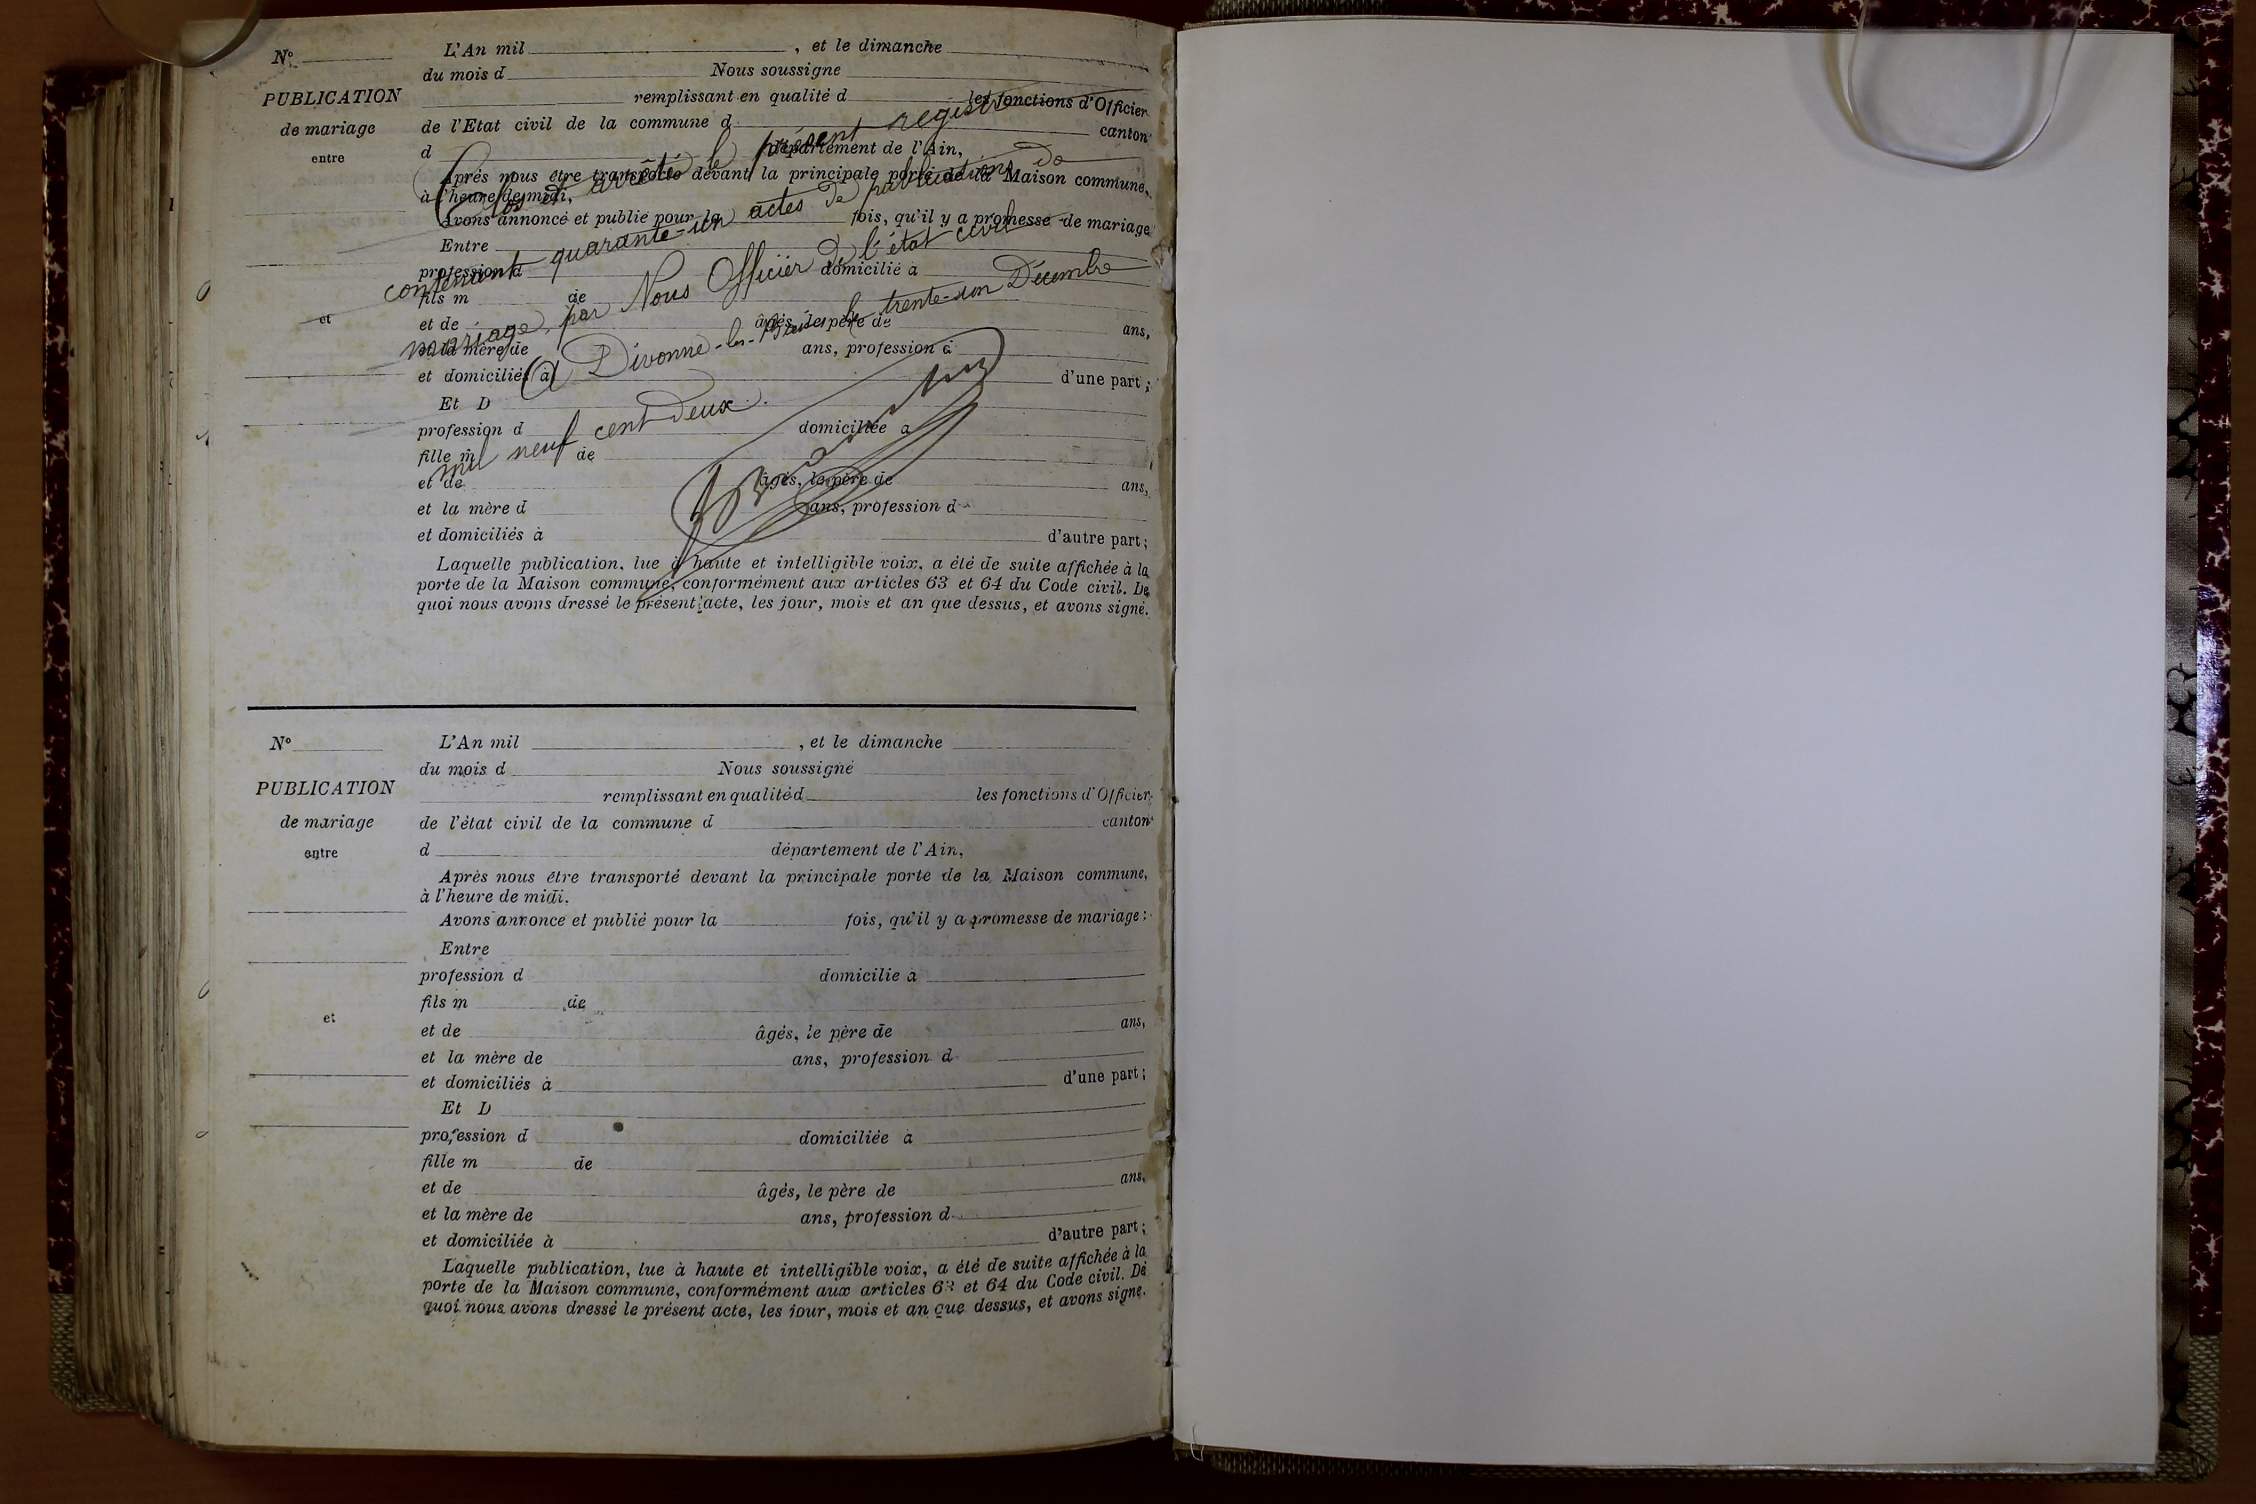 N° L'An mil , et le dimanche
du mois d Nous soussigné
PUBLICATION
remplissant en qualité d les fonctions d'Officier
de mariage
de l'Etat civil de la commune d canton
entre
d département de l'Ain,
Après nous être transporté devant la principale porte de la Maison commune,
à l'heure de midi,
Avons annoncé et publié pour la fois, qu'il y a promesse de mariage
Entre
profession d domicilié à
fils m de
et
et de âgés, le père de ans,
et la mère de ans, profession d
et domiciliés à d'une part ;
Et D
profession d domiciliée à
fille m de
et de âgés, le père de ans,
et la mère d ans, profession d
et domiciliés à d'autre part ;
Laquelle publication, lue à haute et intelligible voix, a été de suite affichée à la
porte de la Maison commune, conformément aux articles 63 et 64 du Code civil. De
quoi nous avons dressé le présent acte, les jour, mois et an que dessus, et avons signé.
Clos et arrêté le présent registre
contenant quarante-un actes de publications de
mariage, par Nous Officier de l'état civil
A Divonne-les-Bains le trente-un Décembre
mil neuf cent deux.
N° L'An mil , et le dimanche
du mois d Nous soussigné
PUBLICATION
remplissant en qualité d les fonctions d'Officier
de mariage
de l'état civil de la commune d canton
entre
d département de l'Ain,
Après nous être transporté devant la principale porte de la Maison commune,
à l'heure de midi.
Avons annonce et publié pour la fois, qu'il y a promesse de mariage :
Entre
profession d domicilie à
fils m de
et
et de âgés, le père de ans,
et la mère de ans, profession d
et domiciliés à d'une part ;
Et D
profession d domiciliée à
fille m de
et de âgés, le père de ans,
et la mère de ans, profession d
et domiciliée à d'autre part ;
Laquelle publication, lue à haute et intelligible voix, a été de suite affichée à la
porte de la Maison commune, conformément aux articles 63 et 64 du Code civil. De
quoi nous avons dressé le présent acte, les jour, mois et an que dessus, et avons signé.